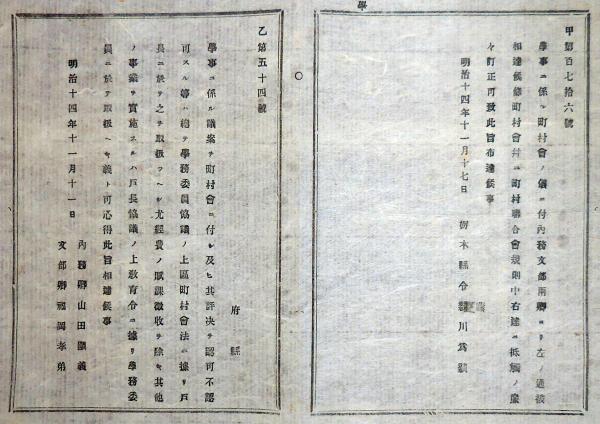 學
甲第百七拾六號
學事ニ係ル町村會ノ儀ニ付內務文部兩卿ヨリ左ノ通被
相達候條町村會幷ニ町村聯合會規則中右達ニ抵觸ノ廉
々訂正可致此旨布達候事
明治十四年十一月十七日
栃木縣令 川爲
乙第五十四號
府縣
學事ニ係ル議案ヲ町村會ニ付シ及ヒ其評決ヲ認可不認
可スル等ハ總テ學務委員協議ノ上區町村會法ニ據リ戶
長ニ於テ之ヲ取扱フヘシ尤經費ノ賦課徵收ヲ除キ其他
ノ事業ヲ實施スルハ戶長協議ノ上敎育令ニ據リ學務委
員ニ於テ取扱ヘキ義ト可心得此旨相達候事
明治十四年十一月十一日
內務卿山田顯義
文部卿福岡孝弟